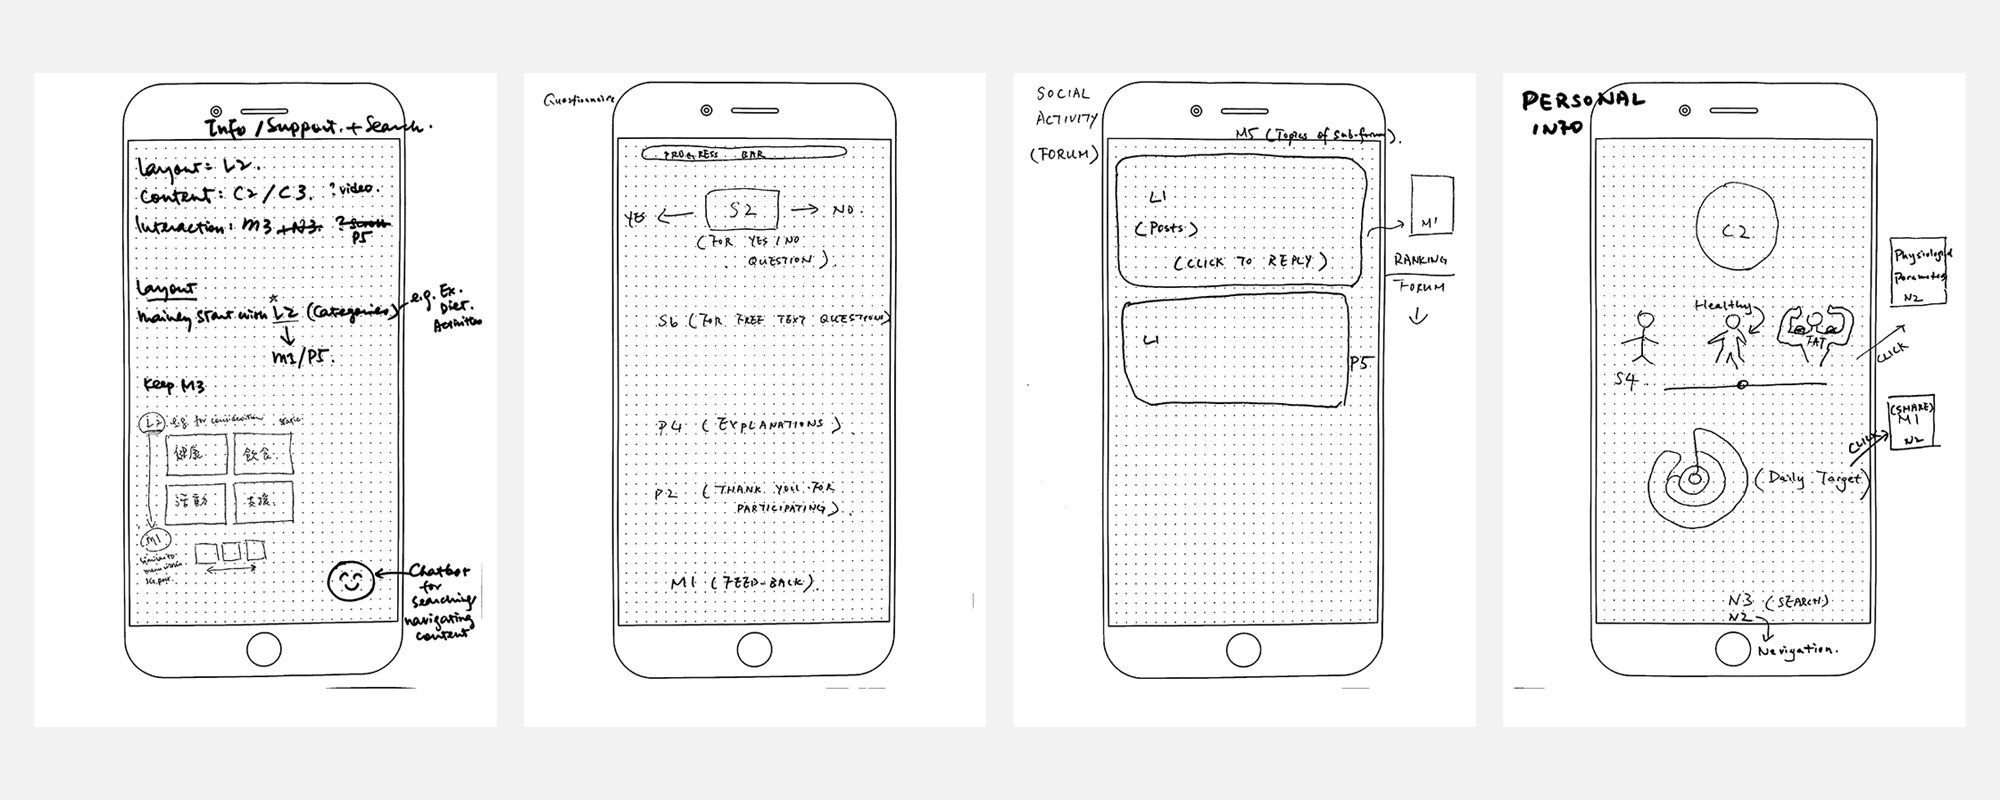 Info/Support.+Search.
Layout = L2.
Content: C2/C3. ?video.
Interaction: M3 +N3. ?Scroll
P5
Layout
mainly start with L2 (Categories)
e.g. Ex.
Diet.
Activities
M1/P5.
Keep M3
L2 e.g. for
健康. 飲食.
活動 支援.
M1
similar to
Chatbot
for
searching/
navigating
content
Questionnaire
PROGRESS BAR
YES S2 NO.
(FOR YES/NO
QUESTION).
S6 (FOR FREE TEXT QUESTION)
P4 (EXPLANATIONS).
P2 (THANK YOU FOR
PARTICIPATING).
M1 (FEED-BACK).
SOCIAL
ACTIVITY
(FORUM)
M5 (Topics of Sub-forum).
L1
(Posts)
(CLICK TO REPLY)
M1
RANKING
FORUM
L1
P5
PERSONAL
INFO
C2
Physiological
Parameter
N2
Healthy
FAT
CLICK
S4
(SHARE)
M1
N2
CLICK
(Daily Target)
N3 (SEARCH)
N2
Navigation.